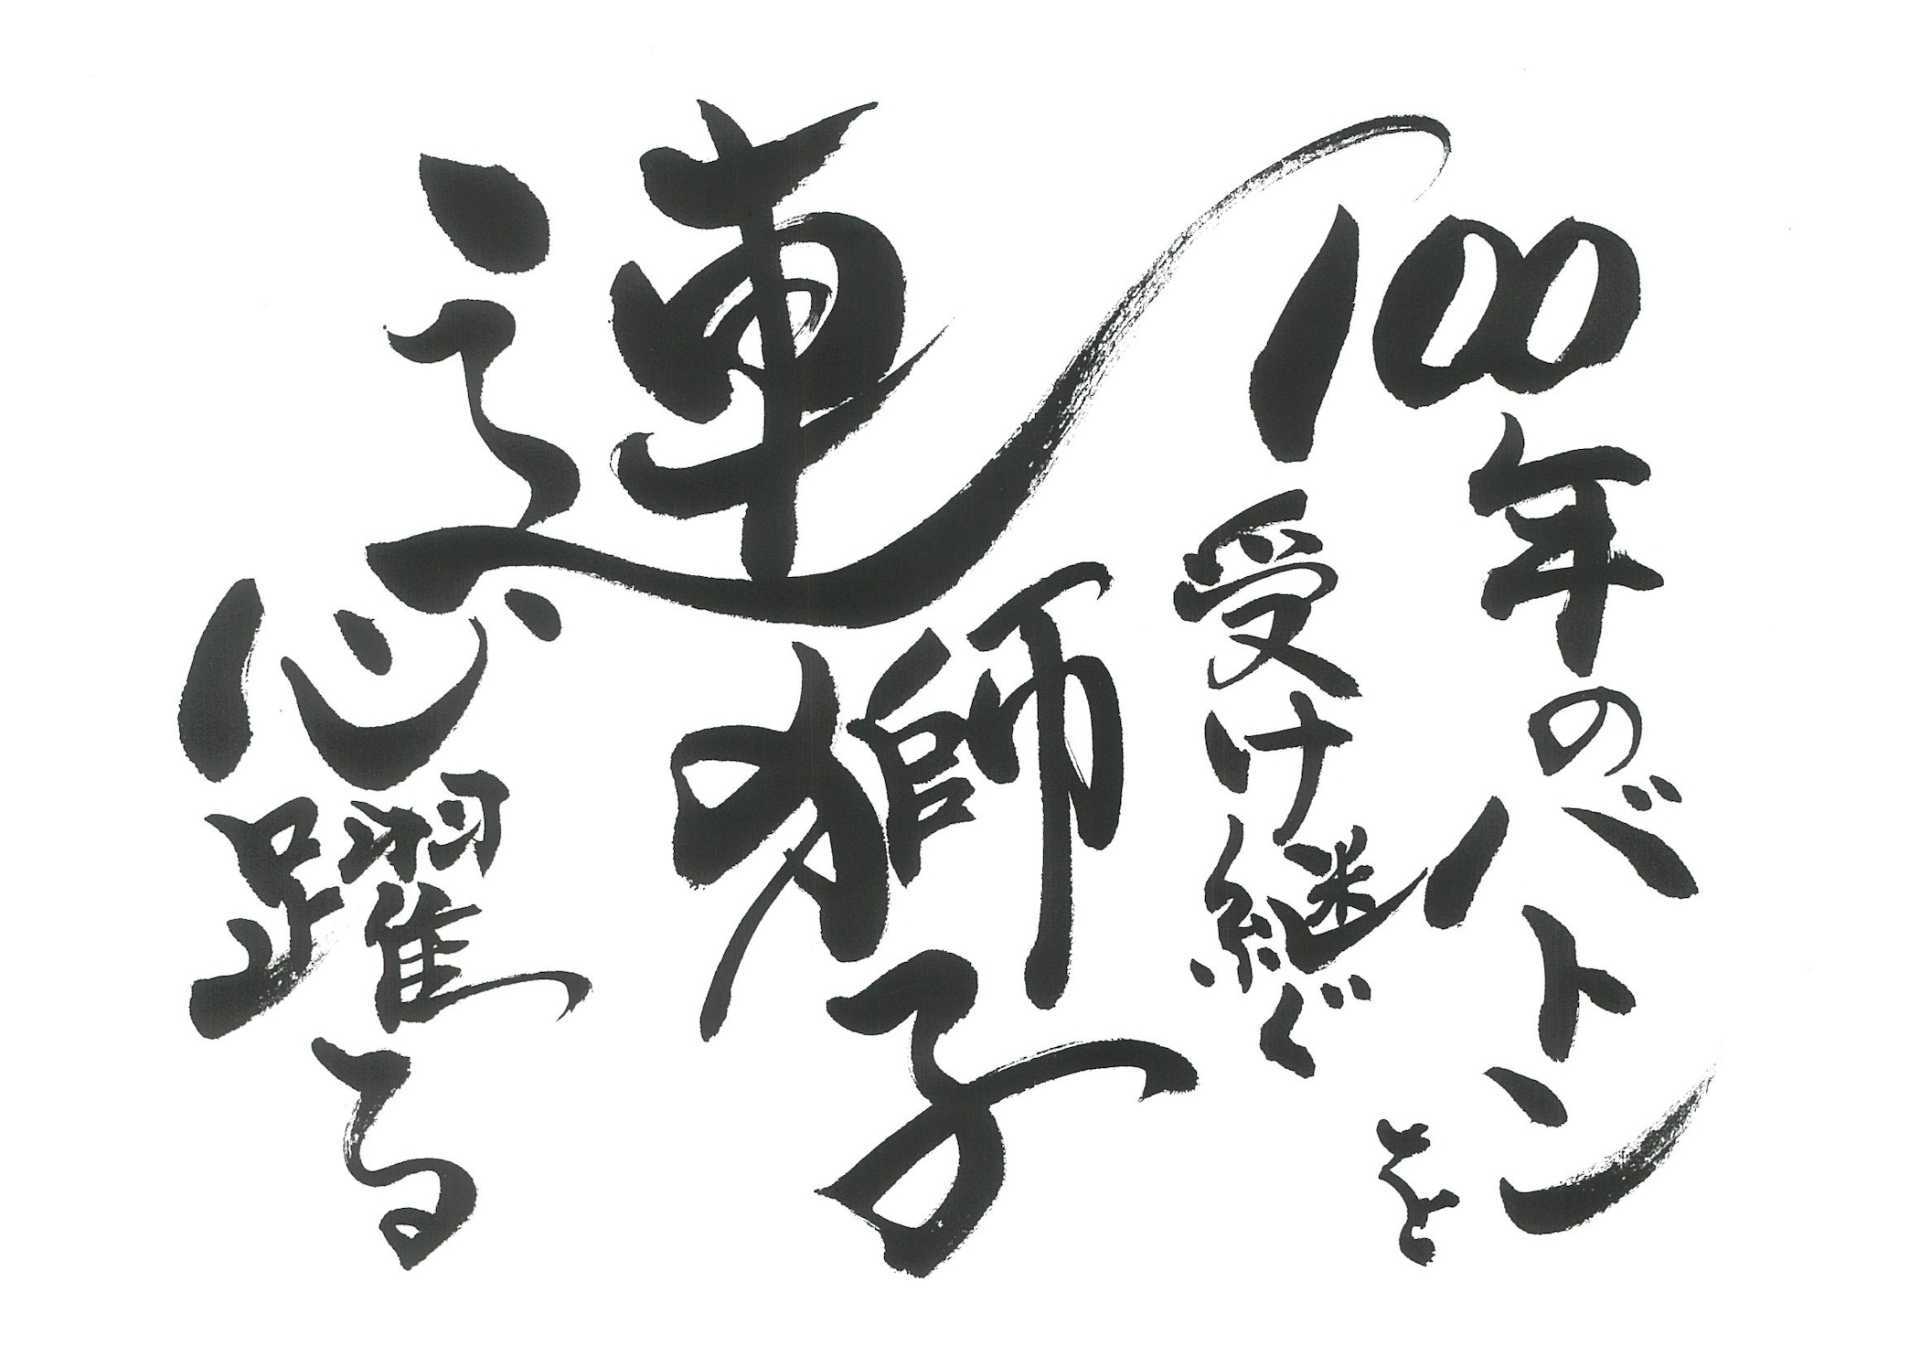 100年のバトンを
受け継ぐ
連獅子
心躍る